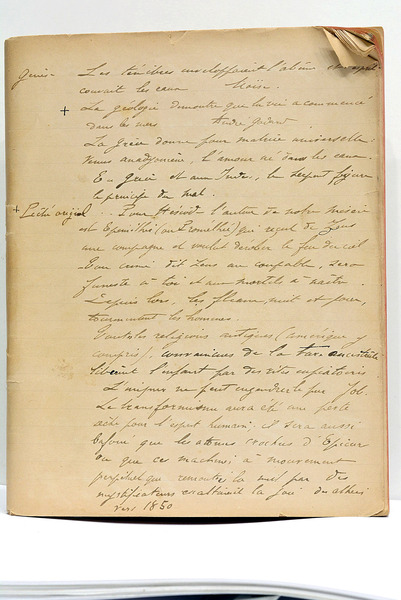 Genès - Les ténèbres enveloppaient l'abîme et
couvrait les eaux Moïse.
+ La géologie démontre que la vie a commencé
dans les mers. André
La Grèce donne pour matrice universelle:
Vénus anadyomène, l'amour né dans les eaux.
En Grèce et aux Indes, le serpent figure
le principe du mal.
+ Péché originel .. Pour Hésiode l'auteur de notre misère
est Epiméthée (ou Prométhée) qui reçut de Zeus
une compagne et voulut dérober le feu du ciel
Ton crime dit Zeus au coupable, sera
funeste à toi et aux mortels à naître.
Depuis lors, les fléaux, nuit et jour,
tourmentent les hommes.
Toutes les religions antiques (Amérique
compris), convaincues de la tare ancestrale
libèrent l'enfant par des rites expiatoires
L'impur ne peut engendrer le pur Job.
Le transformisme aura été une perte
sèche pour l'esprit humain. il sera aussi
bafoué que les atomes crochus d'Epicure
ou que ces machines à mouvement
perpétuel que remontées la nuit par des
mystificateurs exaltaient la joie des athées
vers 1850